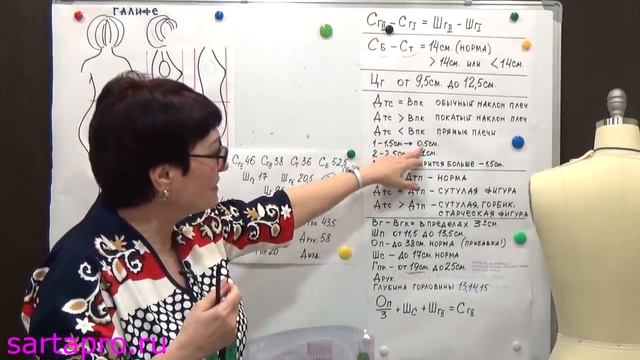 ГАЛИФЕ
СгII – СгI = ШгII – ШгI
СБ – СТ = 14см. (НОРМА)
> 14см. или < 14см.
Цг от 9,5см. до 12,5см.
Дтс = Впк обычный наклон плеч
Дтс > Впк покатый наклон плеч
Дтс < Впк прямые плечи
1 – 1,5см → 0,5см.
2 – 2,5см 1см.
больше – 1,5см.
Дтп – НОРМА
Дтс = Дтп – СУТУЛАЯ ФИГУРА
Дтс > Дтп – СУТУЛАЯ, ГОРБИК,
СТАРЧЕСКАЯ ФИГУРА
Вг – Вгк = В ПРЕДЕЛАХ 3±см
Шп от 11,5 до 13,5см.
Оп – до 38см. НОРМА (ПРИБАВКИ!)
Шс – до 17см. НОРМА
Гпр. – от 19см. до 25см
Друк.
ГЛУБИНА ГОРЛОВИНЫ 13,14,15
Оп/3 + Шс + ШгII = СгII
СгI 46 СгII 38 СТ 36 СБ 52,5
ШгI 17 ШгII 20,5
43,5
58
20 Дизд.
sartapro.ru